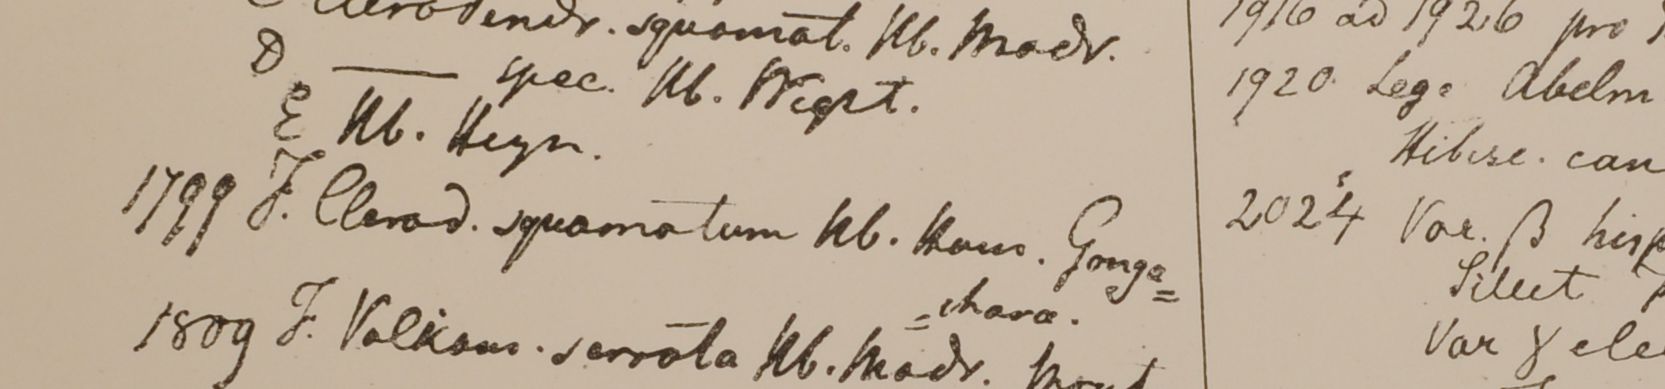 Clerodendr. squamat. Hb. Madr.
D —— spec. Hb. Wight.
E Hb. Heyn.
1799 F. Clerod. squamatum Hb. Ham. Gonga=
=chara.
1809 F. Volkam. serrata Hb. Madr.
1916 ad 1926 pro
1920 Lege Abelm
Hibisc. can
2024 Var. β hisp
Silet
Var γ ele